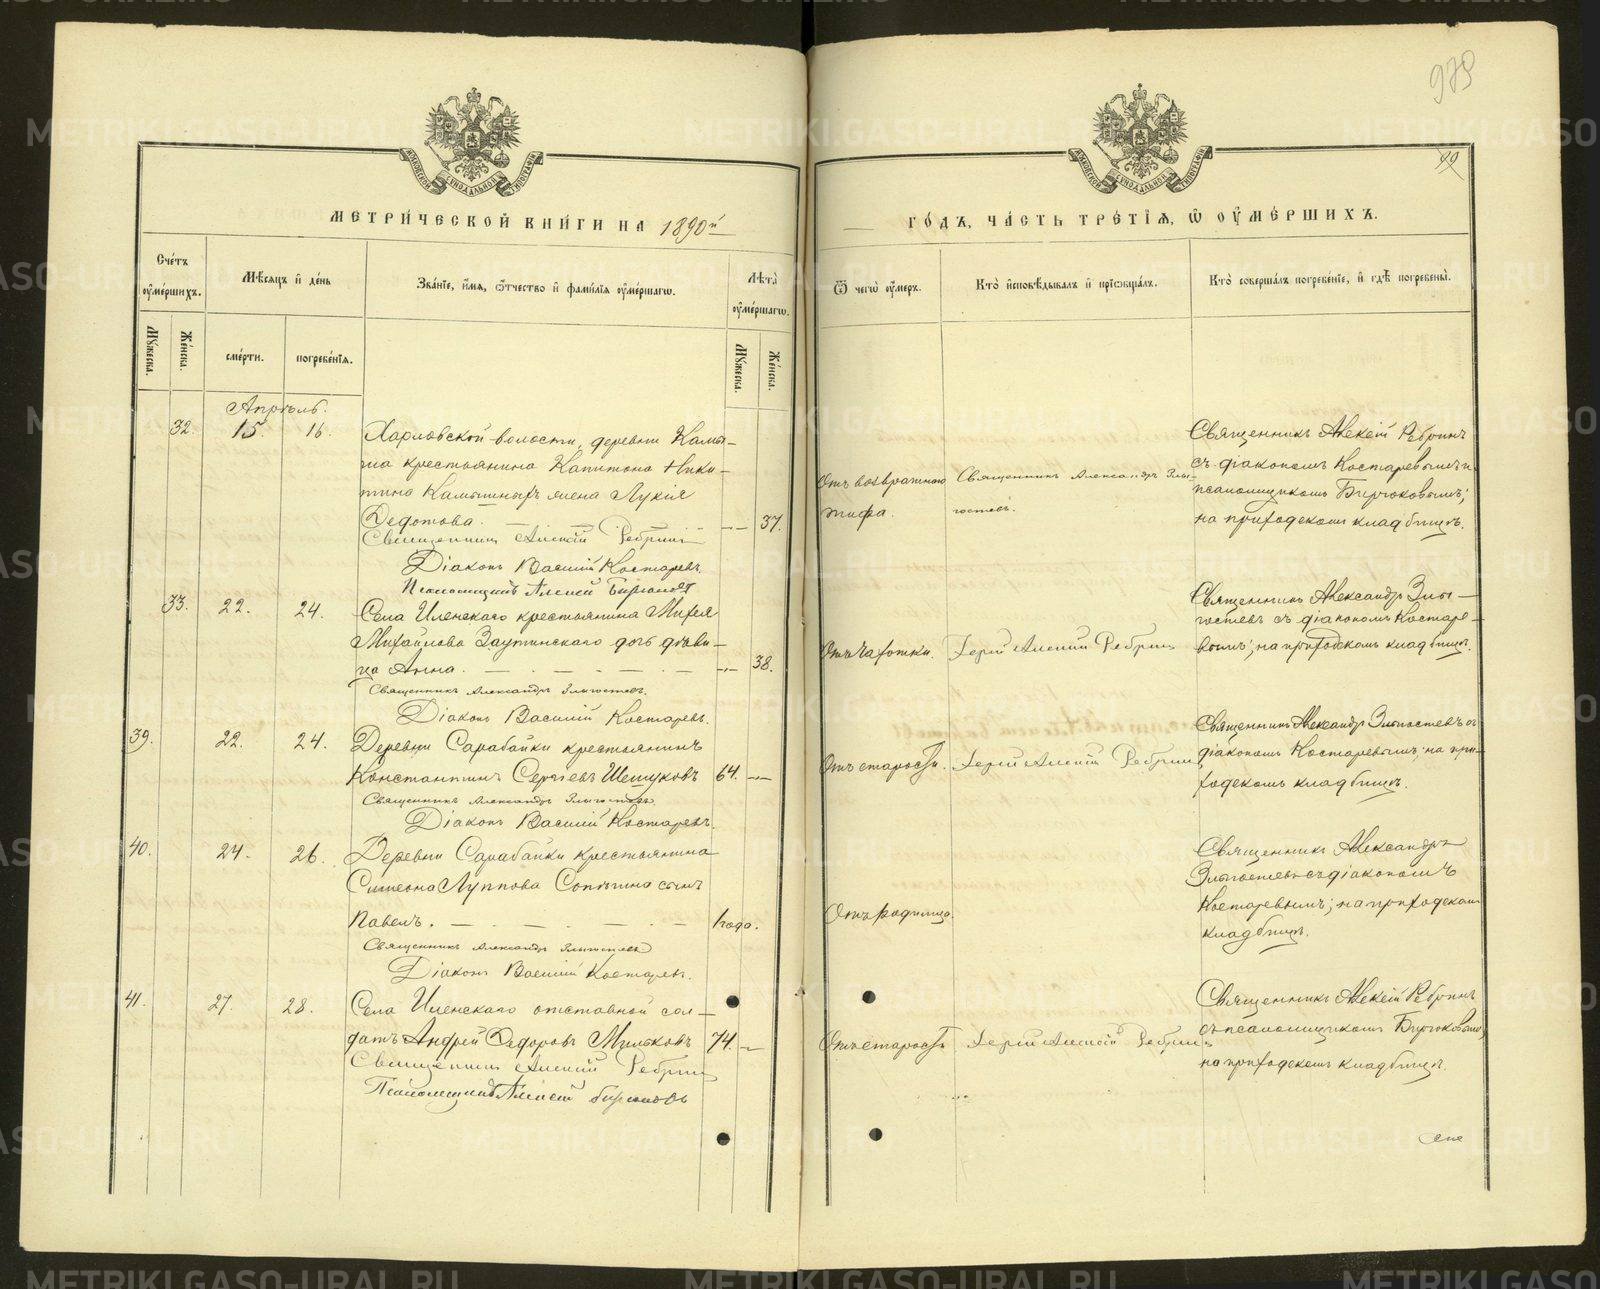 979
99
МОСКОВСКОЙ СѴНОДАЛЬНОЙ ТИПОГРАФІИ
МОСКОВСКОЙ СѴНОДАЛЬНОЙ ТИПОГРАФІИ
МЕТРИ́ЧЕСКОЙ КНИ́ГИ НА 1890й
ГО́ДЪ, ЧА́СТЬ ТРЕ́ТІѦ, Ѿ ОУ҆МЕ́РШИХЪ.
Сче́тъ оу҆ме́ршихъ.
Мѣ́сѧцъ и҆ де́нь
Зва́нїе, и҆́мѧ, ѻ҆́тчество и҆ фамі́лїѧ оу҆ме́ршагѡ.
Лѣ́та оу҆ме́ршагѡ.
Ѿ чегѡ̀ оу҆́меръ.
Кто̀ и҆сповѣ́дывалъ и҆ прїѡбща́лъ.
Кто̀ соверша́лъ погребе́нїе, и҆ гдѣ̀ погребены̀.
Мꙋ́жеска.
Же́нска.
сме́рти.
погребе́нїѧ.
Мꙋ́жеска.
Же́нска.
Апрѣль.
32. 15. 16. Харловской волости, деревни Камы-
ша крестьянина Капитона Ники-
тина Камышныхъ жена Лукія
Федотова. 37.
Священникъ Алексій Ребринъ
Діаконъ Василій Костаревъ.
Псаломщикъ Алексей Бирюковъ
Отъ возвратнаго
тифа.
Священникъ Александръ Злы-
гостевъ.
Священникъ Алексій Ребринъ
съ діакономъ Костаревымъ и
псаломщикомъ Бирюковымъ;
на приходскомъ кладбищѣ.
33. 22. 24. Села Иленскаго крестьянина
Михайлова Заутинскаго дочь дѣви-
ца Анна. 38.
Священникъ Александръ Злыгостевъ.
Діаконъ Василій Костаревъ.
Отъ чахотки.
Іерей Алексій Ребринъ
Священникъ Александръ Злы-
гостевъ съ діакономъ Костаре-
вымъ; на приходскомъ кладбищѣ.
39. 22. 24. Деревни Сарабайки крестьянинъ
Константинъ Сергіевъ Шешуковъ 64.
Священникъ Александръ Злыгостевъ
Діаконъ Василій Костаревъ.
Отъ старости.
Іерей Алексій Ребринъ
Священникъ Александръ Злыгостевъ съ
діакономъ Костаревымъ; на при-
ходскомъ кладбищѣ.
40. 24. 26. Деревни Сарабайки крестьянина
Симеона Луппова сынъ
Павелъ. 1 года.
Священникъ Александръ Злыгостевъ
Діаконъ Василій Костаревъ.
Отъ родимца.
Священникъ Александръ
Злыгостевъ съ діакономъ
Костаревымъ; на приходскомъ
кладбищѣ.
41. 27. 28. Села Иленскаго отставной сол-
датъ Андрей Ѳедоровъ Мильковъ 74.
Священникъ Алексій Ребринъ
Псаломщикъ Алексей Бирюковъ
Отъ старости
Іерей Алексій Ребринъ
Священникъ Алексій Ребринъ
съ псаломщикомъ Бирюковымъ;
на приходскомъ кладбищѣ.
METRIKI.GASO-URAL.RU